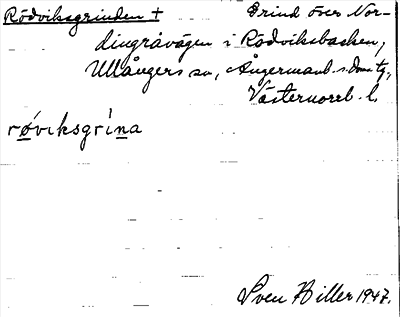 Rödviksgrinden + Grind över Nor-
dingråvägen i Rödviksbacken,
Ullångers sn, Ångermanl. s. dms tg,
Västernorrl. l.
røviksgrina
Sven Hiller 1947.